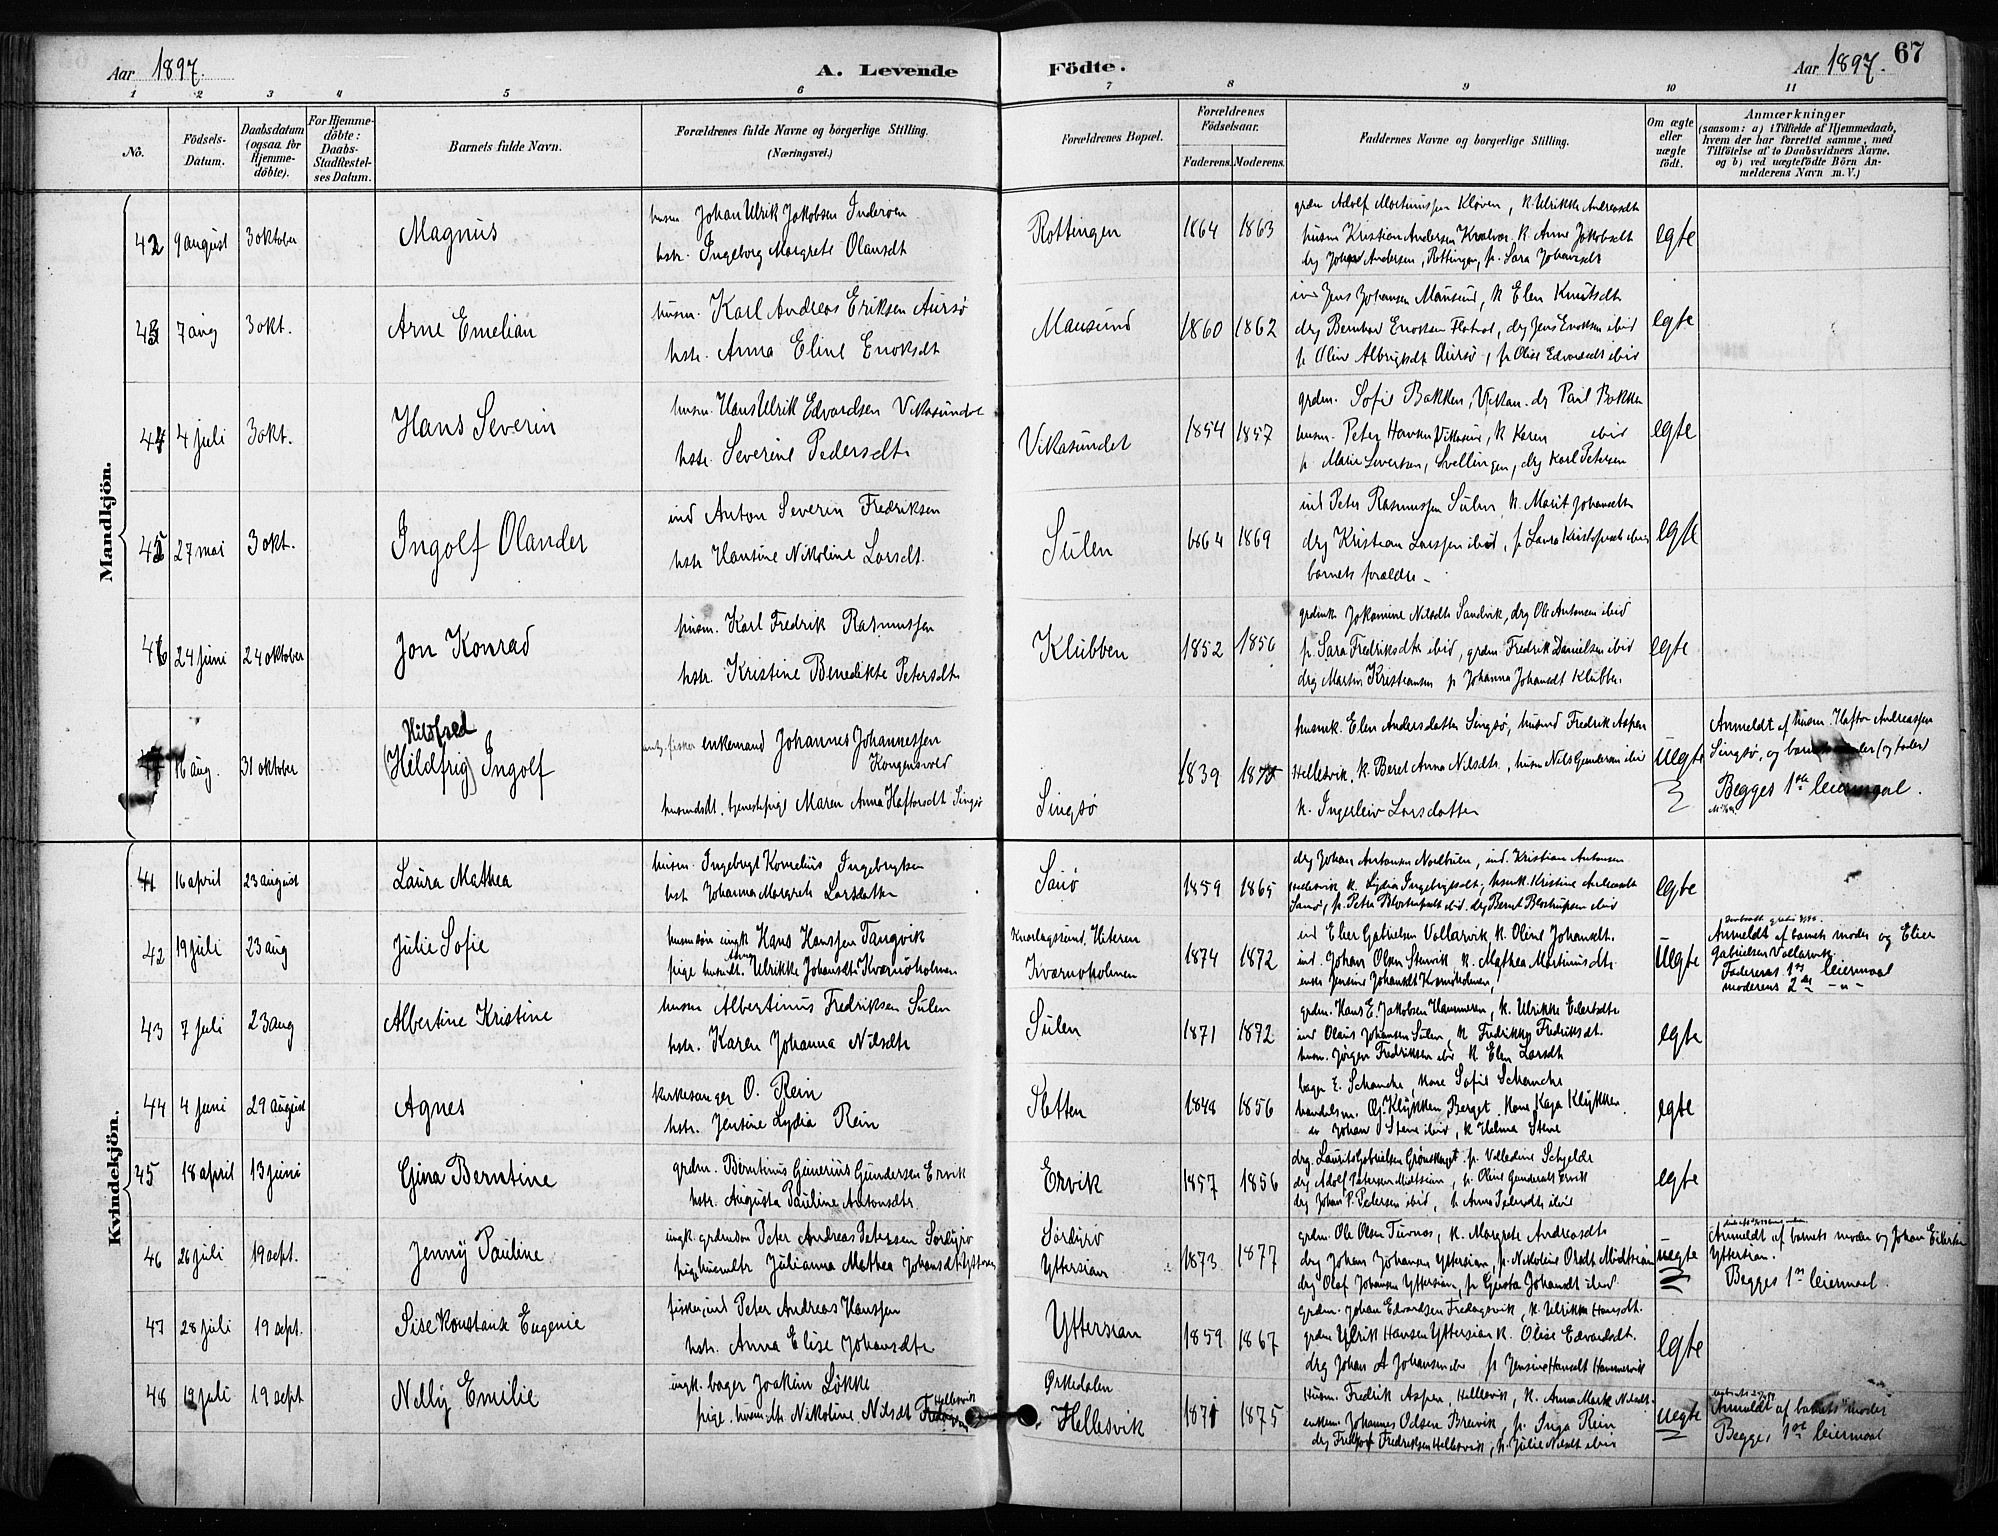 Aar 1897.
A. Levende
Födte.
Aar 1897.
67
1 2 3 4 5 6 7 8 9 10 11
No.
Födsels-
Datum.
Daabsdatum
(ogsaa for
Hjemme-
döbte).
For Hjemme-
döbte:
Daabs-
Stadfæstel-
ses Datum.
Barnets fulde Navn.
Forældrenes fulde Navne og borgerlige Stilling.
(Næringsvei.)
Forældrenes Bopæl.
Forældrenes
Födselsaar.
Faderens. Moderens.
Faddernes Navne og borgerlige Stilling.
Om ægte
eller
uægte
födt.
Anmærkninger
(saasom: a) i Tilfælde af Hjemmedaab,
hvem der har forrettet samme, med
Tilföielse af to Daabsvidners Navne.
og b) ved uægtefödte Börn An-
melderens Navn m. V.)
Mandkjön.
42 9 august 3 oktober Magnus
husm. Johan Ulrik Jakobsen Inderøen
hstr. Ingeborg Margrete Olausdt
Rottingen 1864 1863
grdm Adolf Martinussen Kløven, k. Ulrikke Andreasdt
husm Kristian Andersen Kvalvær k. Anne Jakobsdt
drg Johan Andersen, Rottingen, p. Sara Johansdt
egte
43 7 aug 3 okt. Arne Emelian
husm. Karl Andreas Eriksen Aursø
hstr. Anna Eline Enoksdt
Mausund 1860 1862
ind Jens Johansen Mausund, k Elen Knutsdt
drg Bernhar Enoksen Flatval, drg Jens Enoksen ibid
p. Oline Albrigtsdt Aursø, p. Olise Edvardsdt ibid
egte
44 4 juli 3 okt. Hans Severin
husm. Hans Ulrik Edvardsen Vikasundet
hstr. Severine Pedersdtr
Vikasundet 1854 1857
grdm. Sofie Bakken, Vikan. drg Paul Bakken
husm. Peter Hansen Vikasund, k Karen ibid
p. Marie Sivertsen, Svellingen, drg Karl Petersen
egte
45 27 mai 3 okt. Ingolf Olander
ind Anton Severin Fredriksen
hstr Hansine Nikoline Larsdt.
Sulen 1864 1869
ind Peter Rasmussen Sulen, k. Marit Johansdt
drg Kristian Larssen ibid, p Laura Kristofersdt ibid
barnets forældre -
egte
46 24 juni 24 oktober Jon Konrad
husm. Karl Fredrik Rasmussen
hstr. Kristine Benedikte Petersdtr
Klubben 1852 1856
grdmk. Jokumine Nilsdtr Sandvik, drg Ole Antonsen ibid
p. Sara Fredriksdtr ibid, grdm. Fredrik Danielsen ibid
drg Martin Kristiansen p Johanna Johansdt Klubben
egte
16 aug. 31 oktober
Hildfred
(Hildfrig) Ingolf
fisker enkemand Johannes Johannessen
Kongensvold
husmdsdt. tjenestepige Maren Anna Haftorsdt Singsø
Singsø
1839
husmk. Elen Andersdatter Singsø, husmd Fredrik Aspen
Hellesvik, k. Beret Anna Nilsdtr, husm Nils Gundersen ibid
k. Ingerleiv Larsdatter
Uegte
Anmeldt af husm. Haftor Andreassen
Singsø, og barnets moder (og fader)
Begges 1ste leiermaal.
Kvindekjön.
41 16 april 23 august Laura Mathea
husm. Ingebrigt Kornelius Ingebrigtsen
hst Johanna Margrete Larsdatter
Sanø 1859 1865
drg Johan Antonsen Nordbuen, ind. Kristian Antonsen
Hellesvik k. Lydia Ingebrigtsdt, husmk. Kristine Andreasdt
Sanø, p. Petra ibid. drg Bernt ibid
egte
42 19 juli 23 aug Julie Sofie
husmdsøn ungk Hans Hanssen Tangvik
pige husmdt. Anna Ulrikke Johansdtr Kværnøholmen
Knarlagssund, Hiteren
Kværnøholmen
1874 1872
ind Elier Gabrielsen Vallarvik k. Oline Johansdt.
ind. Johan Olsen Stenvik k. Mathea Martinusdtr
enke Jensine Johansdt Kværnøholmen,
Uegte
Anmeldt af barnets moder og Elier
Gabrielsen Vallarvik
Faderens 1ste leiermaal
moderens 2det -"-
43 7 juli 23 aug Albertine Kristine
husm Albertinus Fredriksen Sulen
hstr. Karen Johanna Nilsdtr
Sulen 1871 1872
grdm. Hans E. Jakobsen Hammeren, k. Ulrikke Eliertsdtr
ind Olaus Johansen Sulen, k Fredrikke Fredriksdt.
husm. Jørgen Fredriksen ibid k. Elen Larsdt
egte
44 4 juni 29 august Agnes
kirkesanger O. Rein
hstr. Jensine Lydia Rein
Sletten 1848 1856
bager E. Schanche, kone Sofie Schanche
handelsm. O. Klykken, Berget, kone Kaja Klykken
do Johan Stene ibid, k Helma Stene
egte
45 18 april 13 juni Gina Berntine
grdm. Berntinus Gunerius Gundersen Ervik
hstr. Augusta Pauline Antonsdtr
Ervik 1857 1856
drg. Laurits Gabrielsen Grønskaget p. Valledine Schjelde
drg Adolf Petersen Midtsian, p Oline Gundersdt Ervik
drg Johan P. Pedersen ibid, p. Anna Pedersdtr ibid
egte
46 26 juli 19 sept. Jenny Pauline
ungk. grdmdsøn Peter Andreas Petersen Sørdyrø
pige husmdtr Julianna Mathea Johansdt Yttersian
Sørdyrø
Yttersian
1873 1877
grdm. Ole Olsen Tuvnes, k. Margrete Andreasdtr
drg Johan Johansen Yttersian, p. Nikoline Olsdt Midtsian
drg Olaf Johansen Yttersian, p. Gusta Johansdt ibid
uegte
Anmeldt af barnets moder og Johan Eliertsen
Yttersian.
Begges 1ste leiermaal
47 28 juli 19 sept. Sise Konstanse Eugenie
fisker, ind Peter Andreas Hanssen
hstr. Anna Elise Johansdtr
Yttersian 1859 1867
grdm. Johan Edvardsen Fredagsvik, k. Ulrikke Hansdt.
grdm Ulrik Hansen Yttersian k. Olise Edvardsdt.
drg Johan A Johansen ibid p. Jensine Hansdt Hammervik
egte
48 19 juli 19 sept Nelly Emilie
ungk. bager Joakim Løkke
pige. husmdtr Nikoline Nilsdt Hellesvik
Ørkedalen
Hellesvik
1871 1875
Husm. Fredrik Aspen, Hellesvik, k. Anna Marta Nilsdt.
enkem. Johannes Odsen Breivik, p. Inga Rein
drg Fredrik Fredriksen Hellesvik, p. Julie Nilsdt ibid
uegte
Anmeldt af barnets moder
Begges 1ste leiermaal